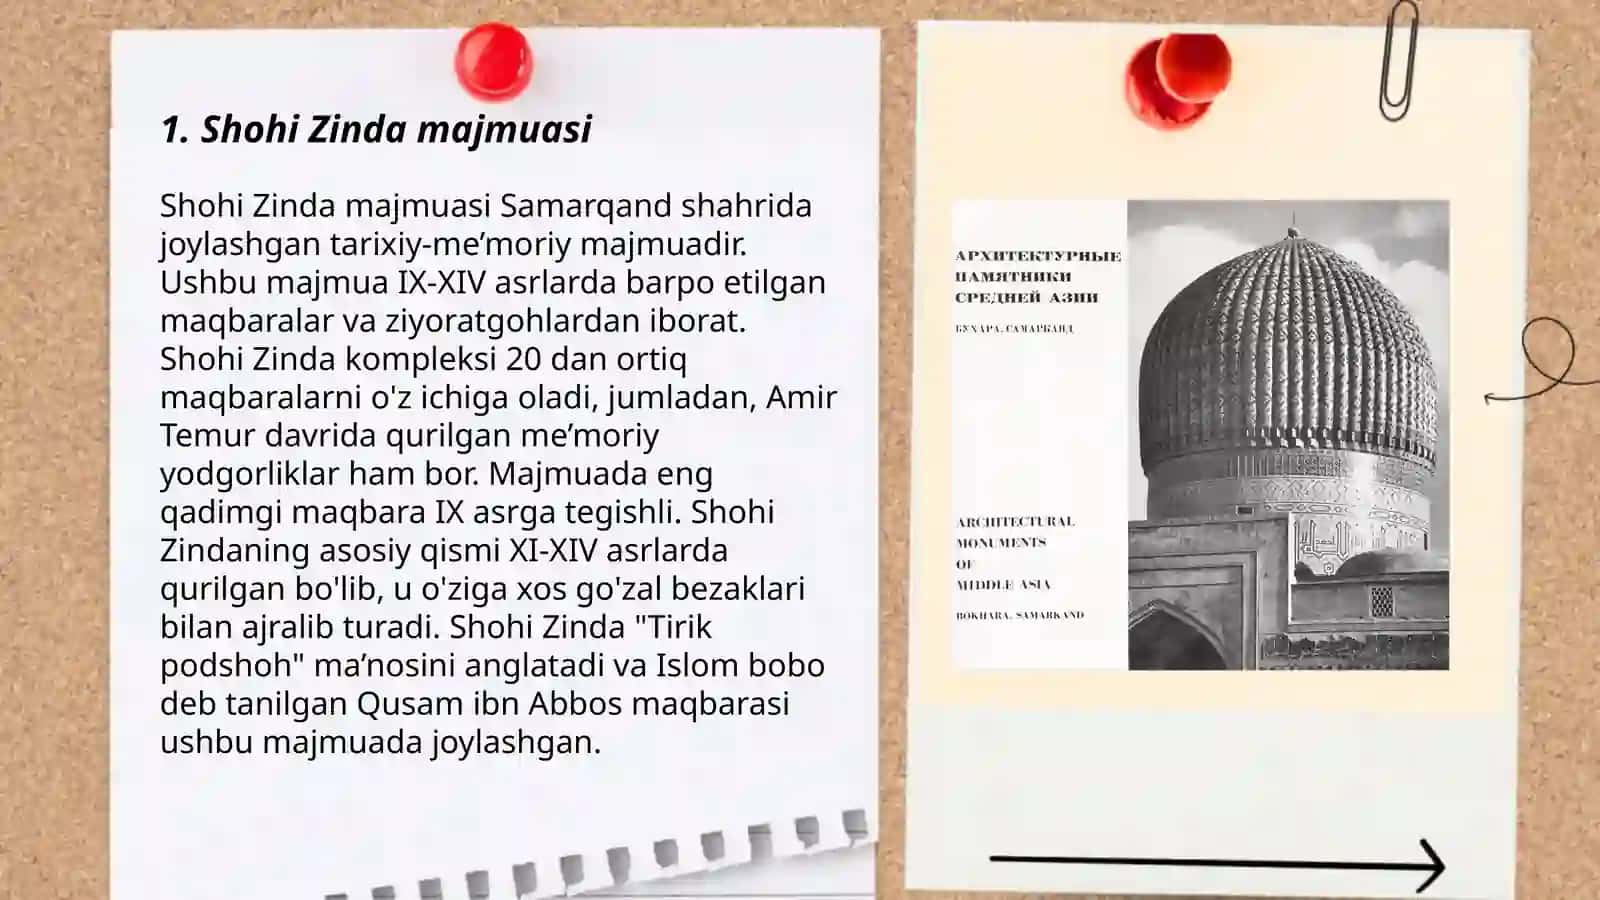 1. Shohi Zinda majmuasi
Shohi Zinda majmuasi Samarqand shahrida
joylashgan tarixiy-me’moriy majmuadir.
Ushbu majmua IX-XIV asrlarda barpo etilgan
maqbaralar va ziyoratgohlardan iborat.
Shohi Zinda kompleksi 20 dan ortiq
maqbaralarni o'z ichiga oladi, jumladan, Amir
Temur davrida qurilgan me’moriy
yodgorliklar ham bor. Majmuada eng
qadimgi maqbara IX asrga tegishli. Shohi
Zindaning asosiy qismi XI-XIV asrlarda
qurilgan bo'lib, u o'ziga xos go'zal bezaklari
bilan ajralib turadi. Shohi Zinda "Tirik
podshoh" ma’nosini anglatadi va Islom bobo
deb tanilgan Qusam ibn Abbos maqbarasi
ushbu majmuada joylashgan.
АРХИТЕКТУРНЫЕ
ПАМЯТНИКИ
СРЕДНЕЙ АЗИИ
БУХАРА, САМАРКАНД
ARCHITECTURAL
MONUMENTS
OF
MIDDLE ASIA
BOKHARA, SAMARKAND